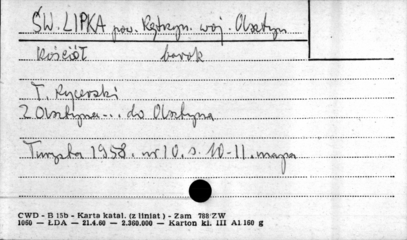 ŚW. LIPKA pow. Kętrzyn. woj. Olsztyn
Kościół barok
T. Rycerski
Z Olsztyna... do Olsztyna
Turysta 1958. nr 10. s. 10-11. mapa
CWD - B 15b - Karta katal. (z liniat) - Zam 788 ZW
1060 — ŁDA — 21.4.60 — 2.360.000 — Karton kl. III A1 160 g